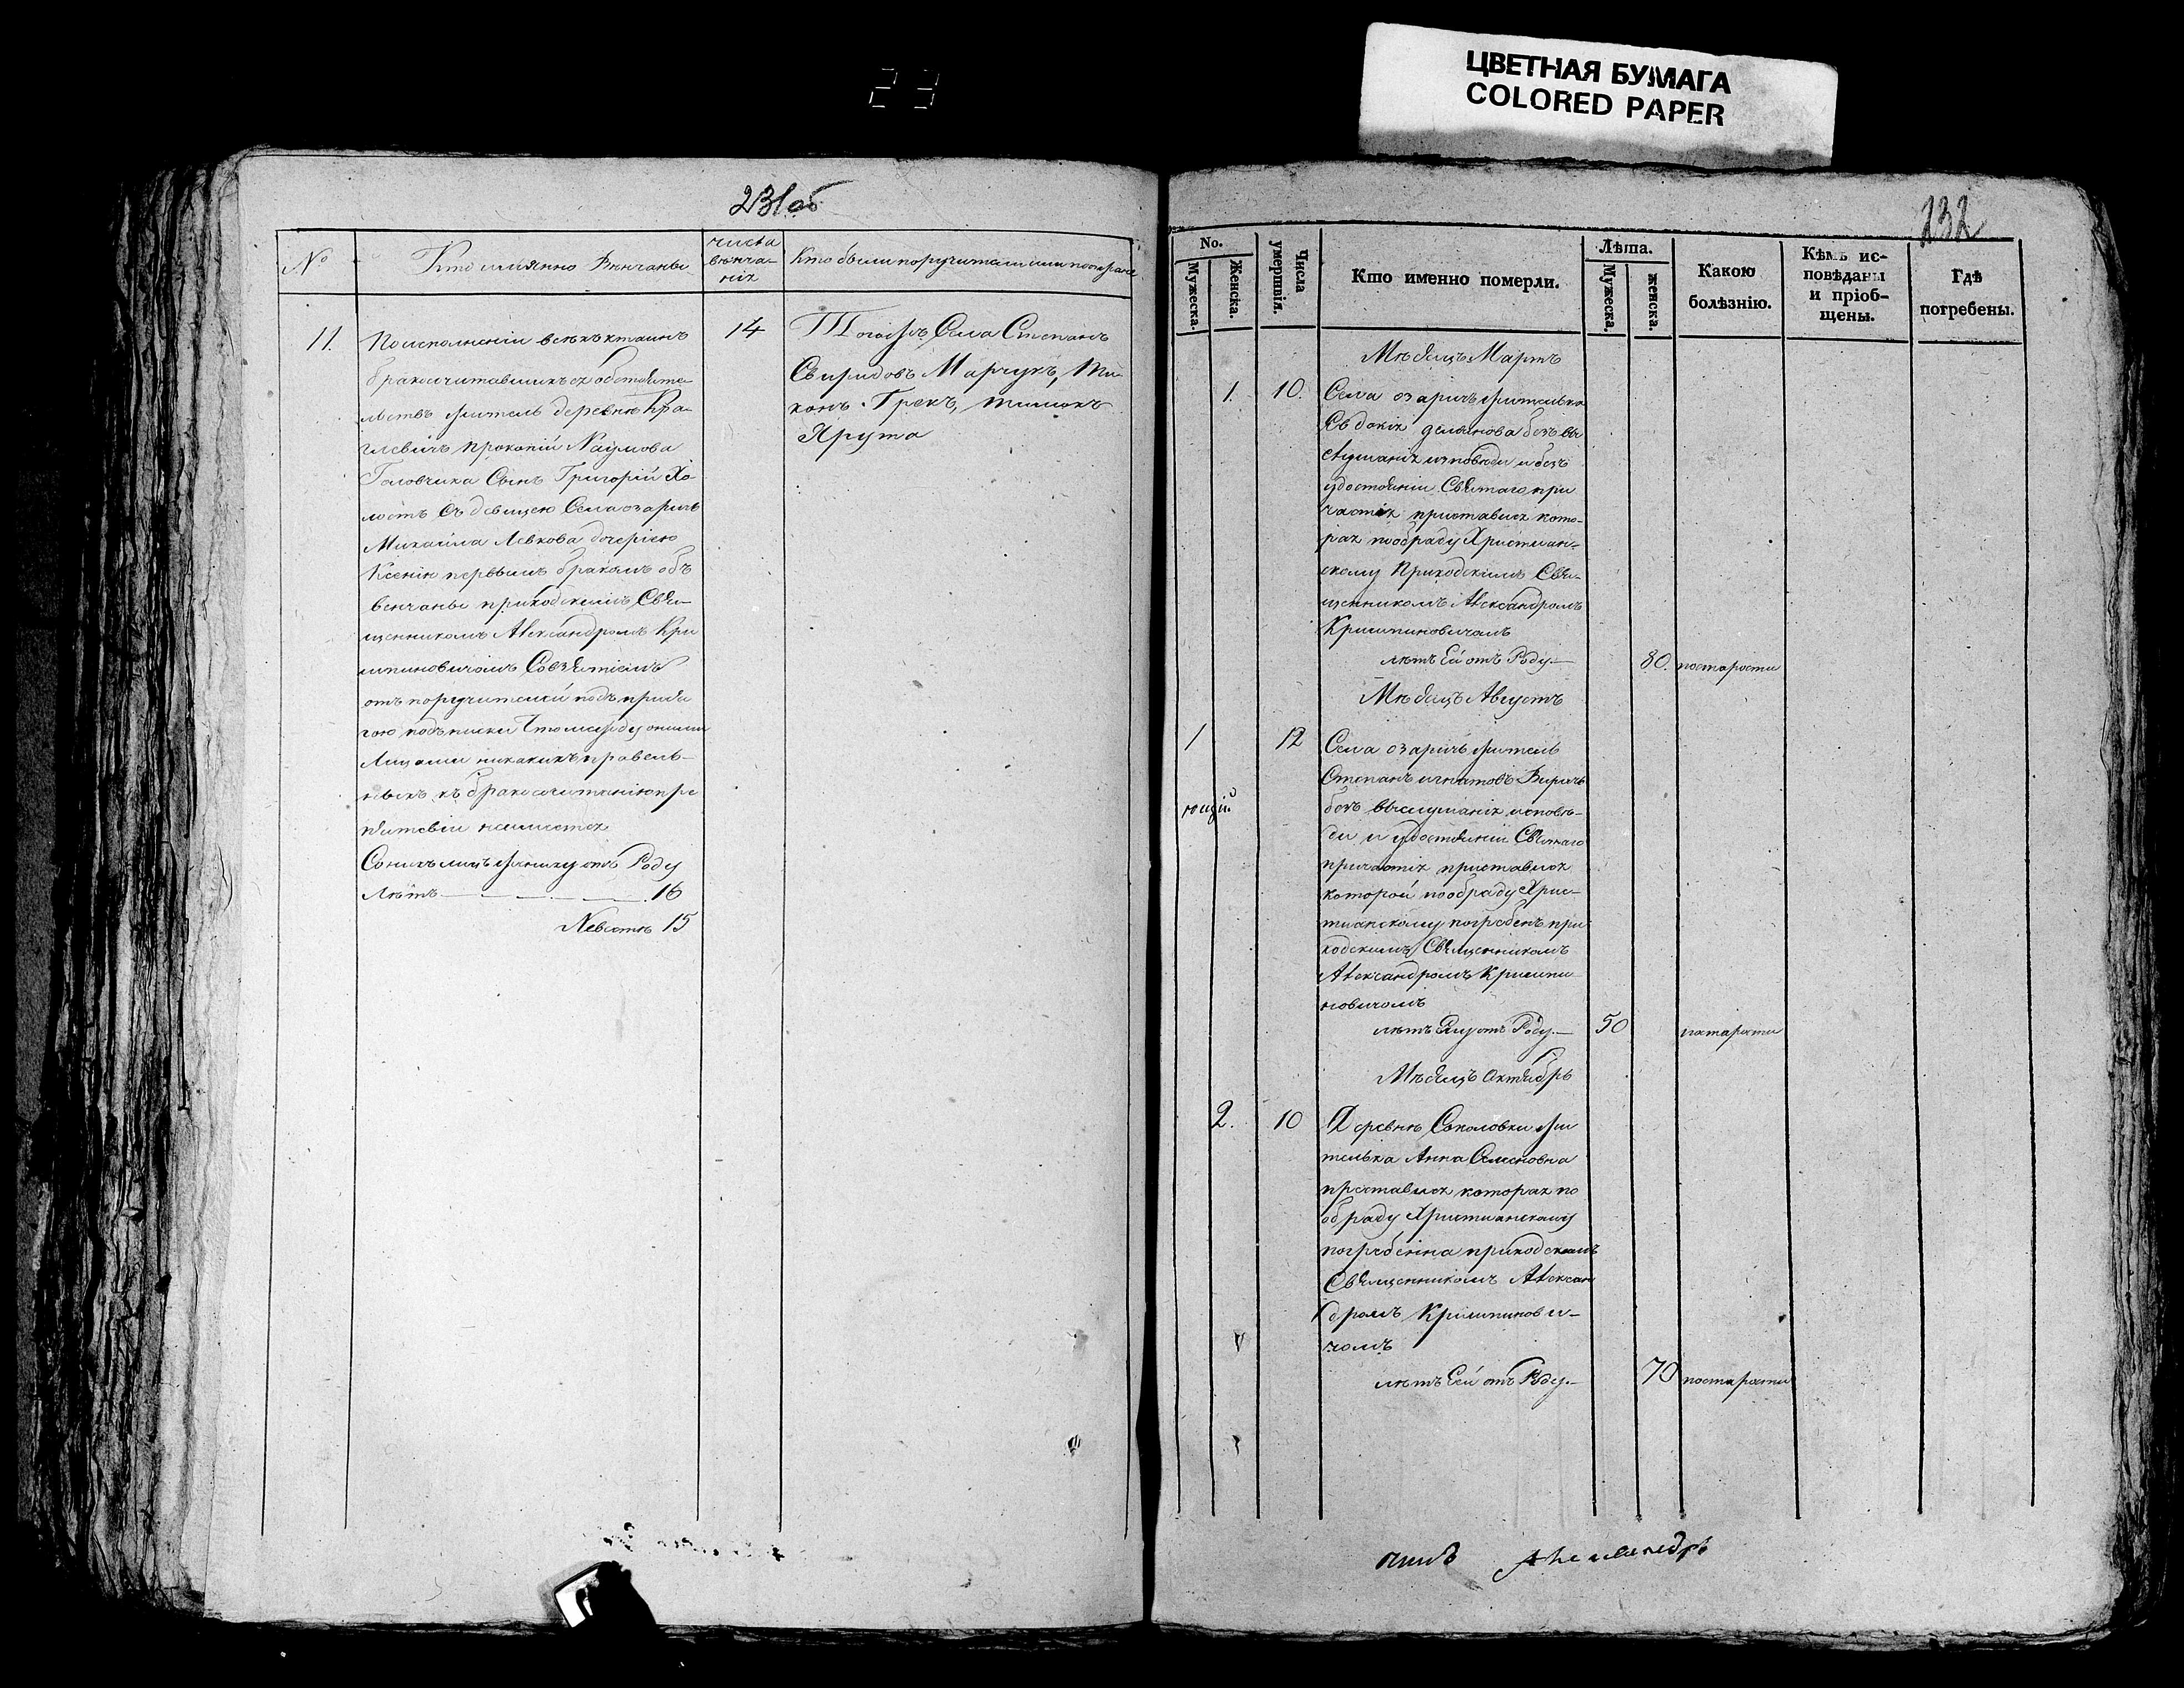 ЦВЕТНАЯ БУМАГА
COLORED PAPER
23
231об
№
Кто имянно Вѣнчаны
числа
вѣнча-
нія
Кто были поручители или поезжане
11.
По исполненіи всѣхъ ктаинъ
бракосчитавшихся обстояте-
льствъ житель деревнѣ Кра-
глевичъ прокопій Наумова
Головчика Сынъ Григорій Хо-
лостъ Съ девицею Села озаричъ
Михаила Левкова дочерію
Ксенію первымъ бракомъ объ
венчаны приходскимъ Свя-
щенникомъ Александромъ Кри
шпиновичомъ Совзятіемъ
отъ поручителей подъ прися
гою подъписки Что между оними
Лицами никакихъ правель-
ныхъ къ бракосчитанію пре
пятсвіи неимеетса
Сонихъ лицъ жениху отъ Роду
лѣтъ 16
Невѣстѣ 15
14
Тогожъ Села Степанъ
Свиридовъ Марчукъ, Ти-
хонъ Грекъ, тимохъ
Ярута
232
No.
Мужеска.
Женска.
Числа
умертвія.
Кто именно померли.
Лѣта.
Мужеска.
женска.
Какою
болѣзнію.
Кѣмъ ис-
повѣданы
и пріоб-
щены.
Гдѣ
погребены.
Мѣсяцъ Мартъ
1. 10.
Села озаричъ жителька
Евдокія демянова безъ вы
слушанія изповѣди и безъ
удостоеніи Святаго при
частія приставися кото-
рая пообраду Христиан-
скому Приходскимъ Свя-
щенникомъ Александромъ
Кришпиновичомъ
лѣтъ Ей отъ Роду 80. постарости
Мѣсяцъ Августъ
1 12
Села озаричъ житель
Степанъ игнатовъ Виричъ
безъ выслушанія исповѣ-
ди и удостоеніи Святаго
причастія приставися
которой пообраду Хрис-
тианскому погребенъ при
ходскимъ Священникомъ
Александромъ Кришпи
новичомъ
ющій
лѣтъ Ему отъ Роду 50 постарости
Мѣсяцъ Октябрь
2. 10
Деревнѣ Соколовки жи
телька Анна Семеновна
преставися которая по
обраду Христианскому
погребенна приходскимъ
Священникомъ Алексан
дромъ Кришпинови-
чомъ
лѣтъ Ей отъ Роду 70 постарости
Александръ